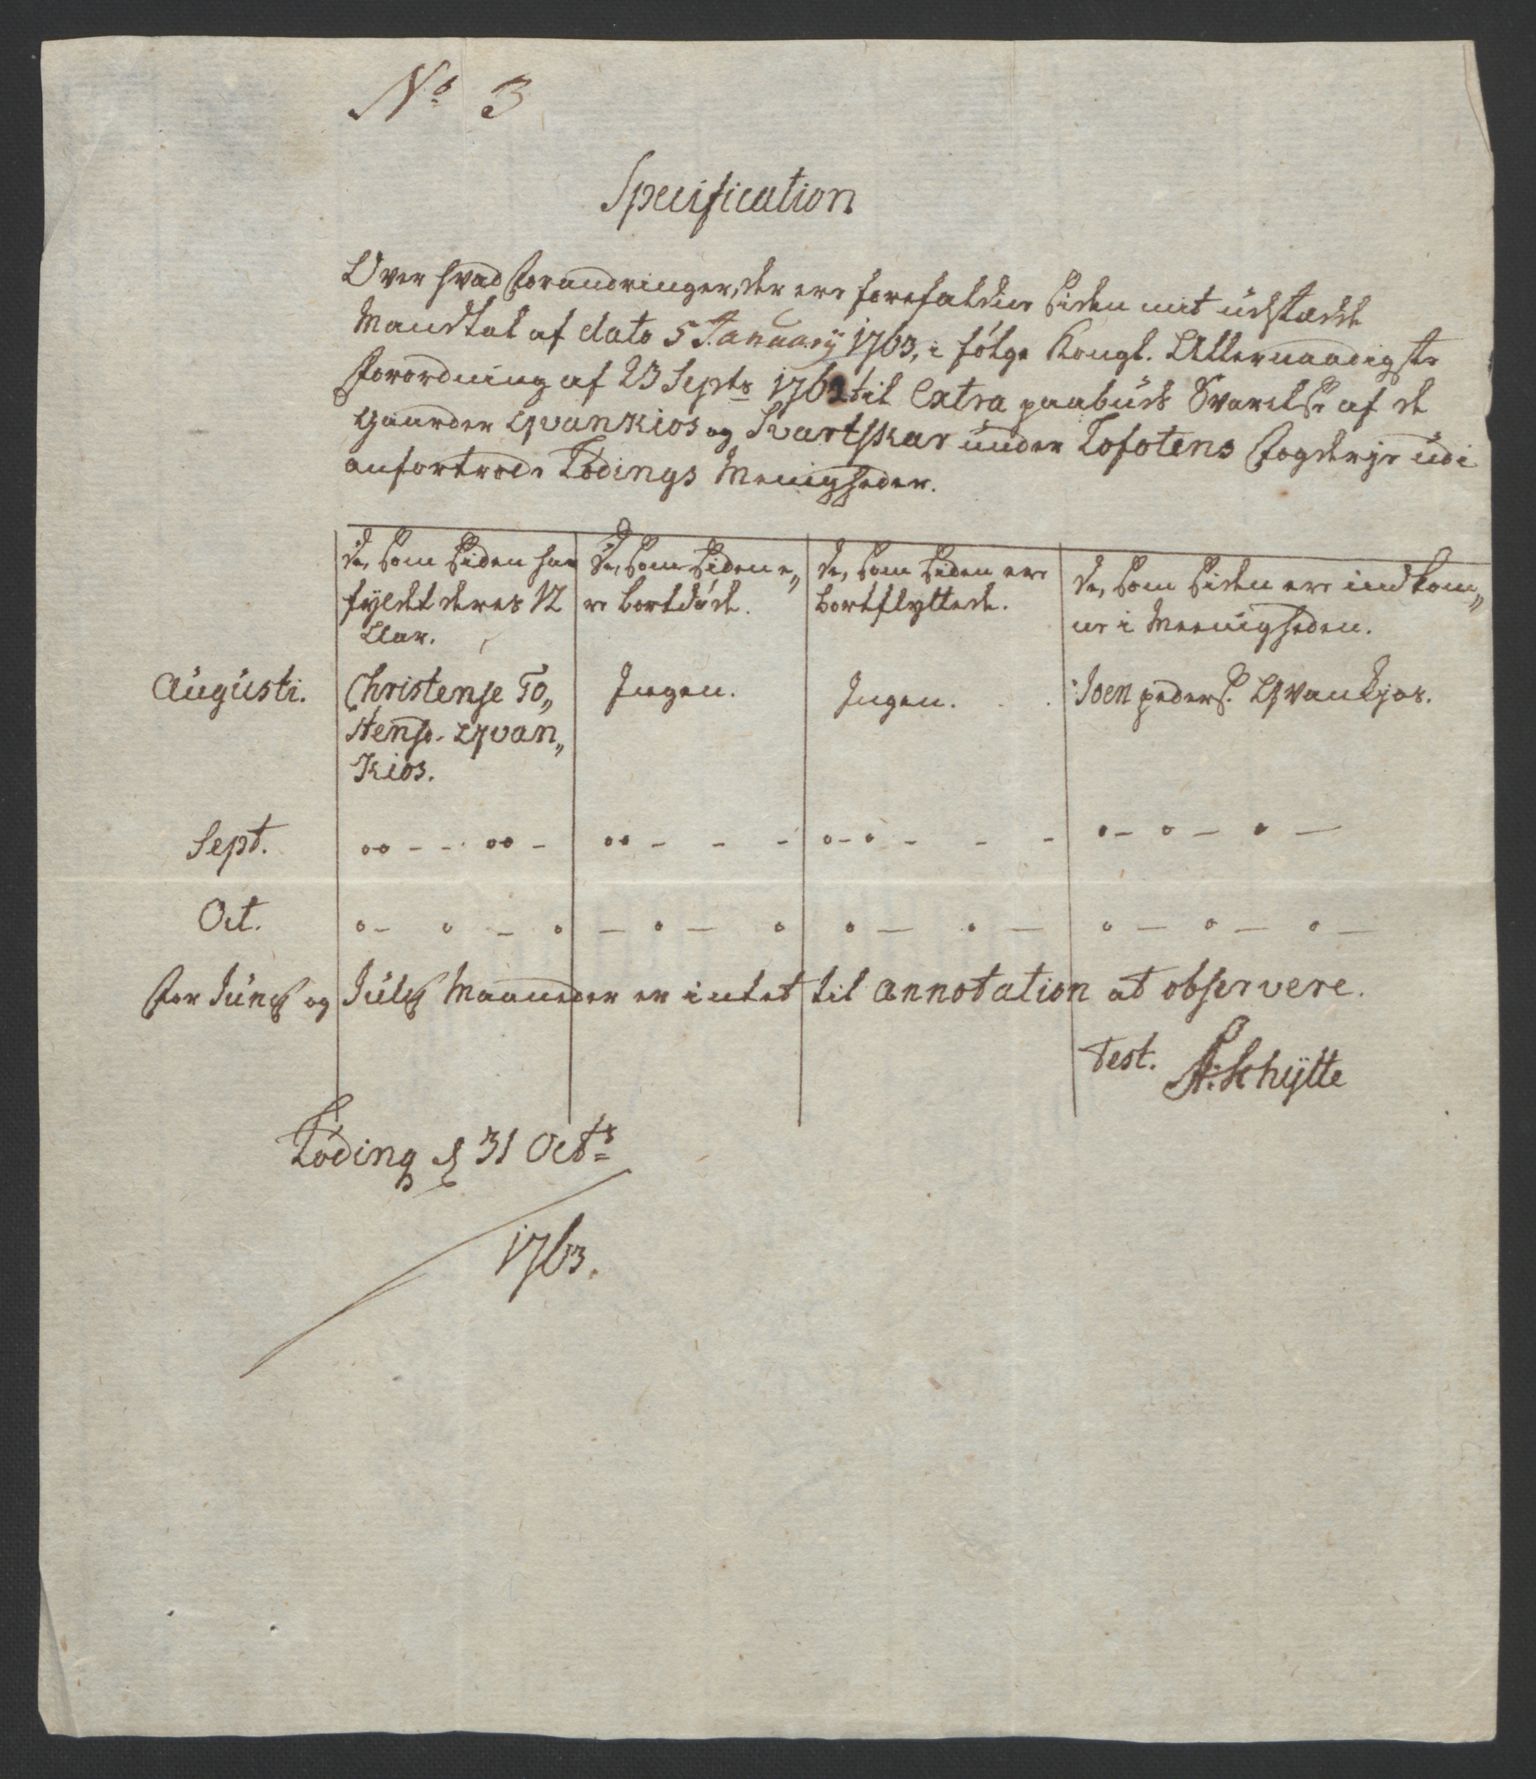 No 3
Specification
Over hvad forandringer, der ere forefaldne siden mit udstædde
Mandtal af dato 5 January 1763, i følge Kongl. Allernaadigste
Forordning af 23 Septr 1762 til Extra paabuds Svarelse af de
Gaarder Qvankios og Svartskar under Lofotens Fogderje udi
anfortrode Lødings Menigheder.
de, som siden har
fyldt deres 12
Aar.
De, som siden e„
re bortdøde.
de, som siden ere
bortflyttede.
de, som siden ere indkom„
ne i Meenigheden.
Augusti.
Christense To„
stensd. Qvan„
Kios.
Ingen.
Ingen.
Joen peders. Qvankjos.
Sept.
Oct.
For Junij og Julij Maaneder er intet til annotation at observere.
Test. A: Schytte
Løding d 31 Octr
1763.